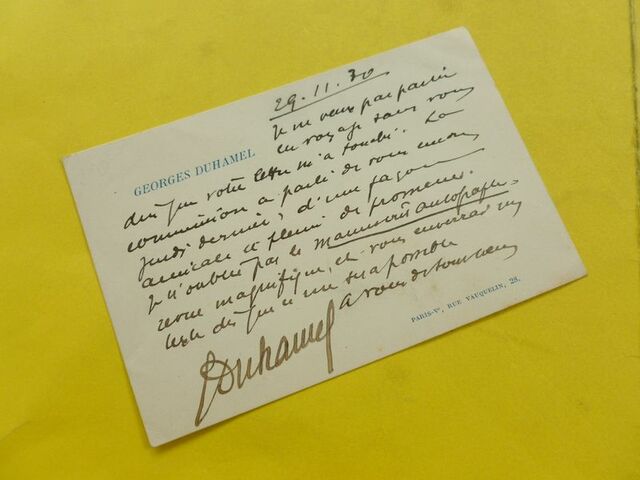 29.11.30
GEORGES DUHAMEL
Je ne veux pas partir
en voyage sans vous
dire que votre lettre m'a touché. La
commission a parlé de vous encore
jeudi dernier, d'une façon
amicale et pleine de promesses.
Je n'oublie pas le Manuscrit autographe,
revue magnifique, et vous enverrai un
texte dès que ce me sera possible
à vous de tout cœur
Duhamel
PARIS-Vᵉ, RUE VAUQUELIN, 28.